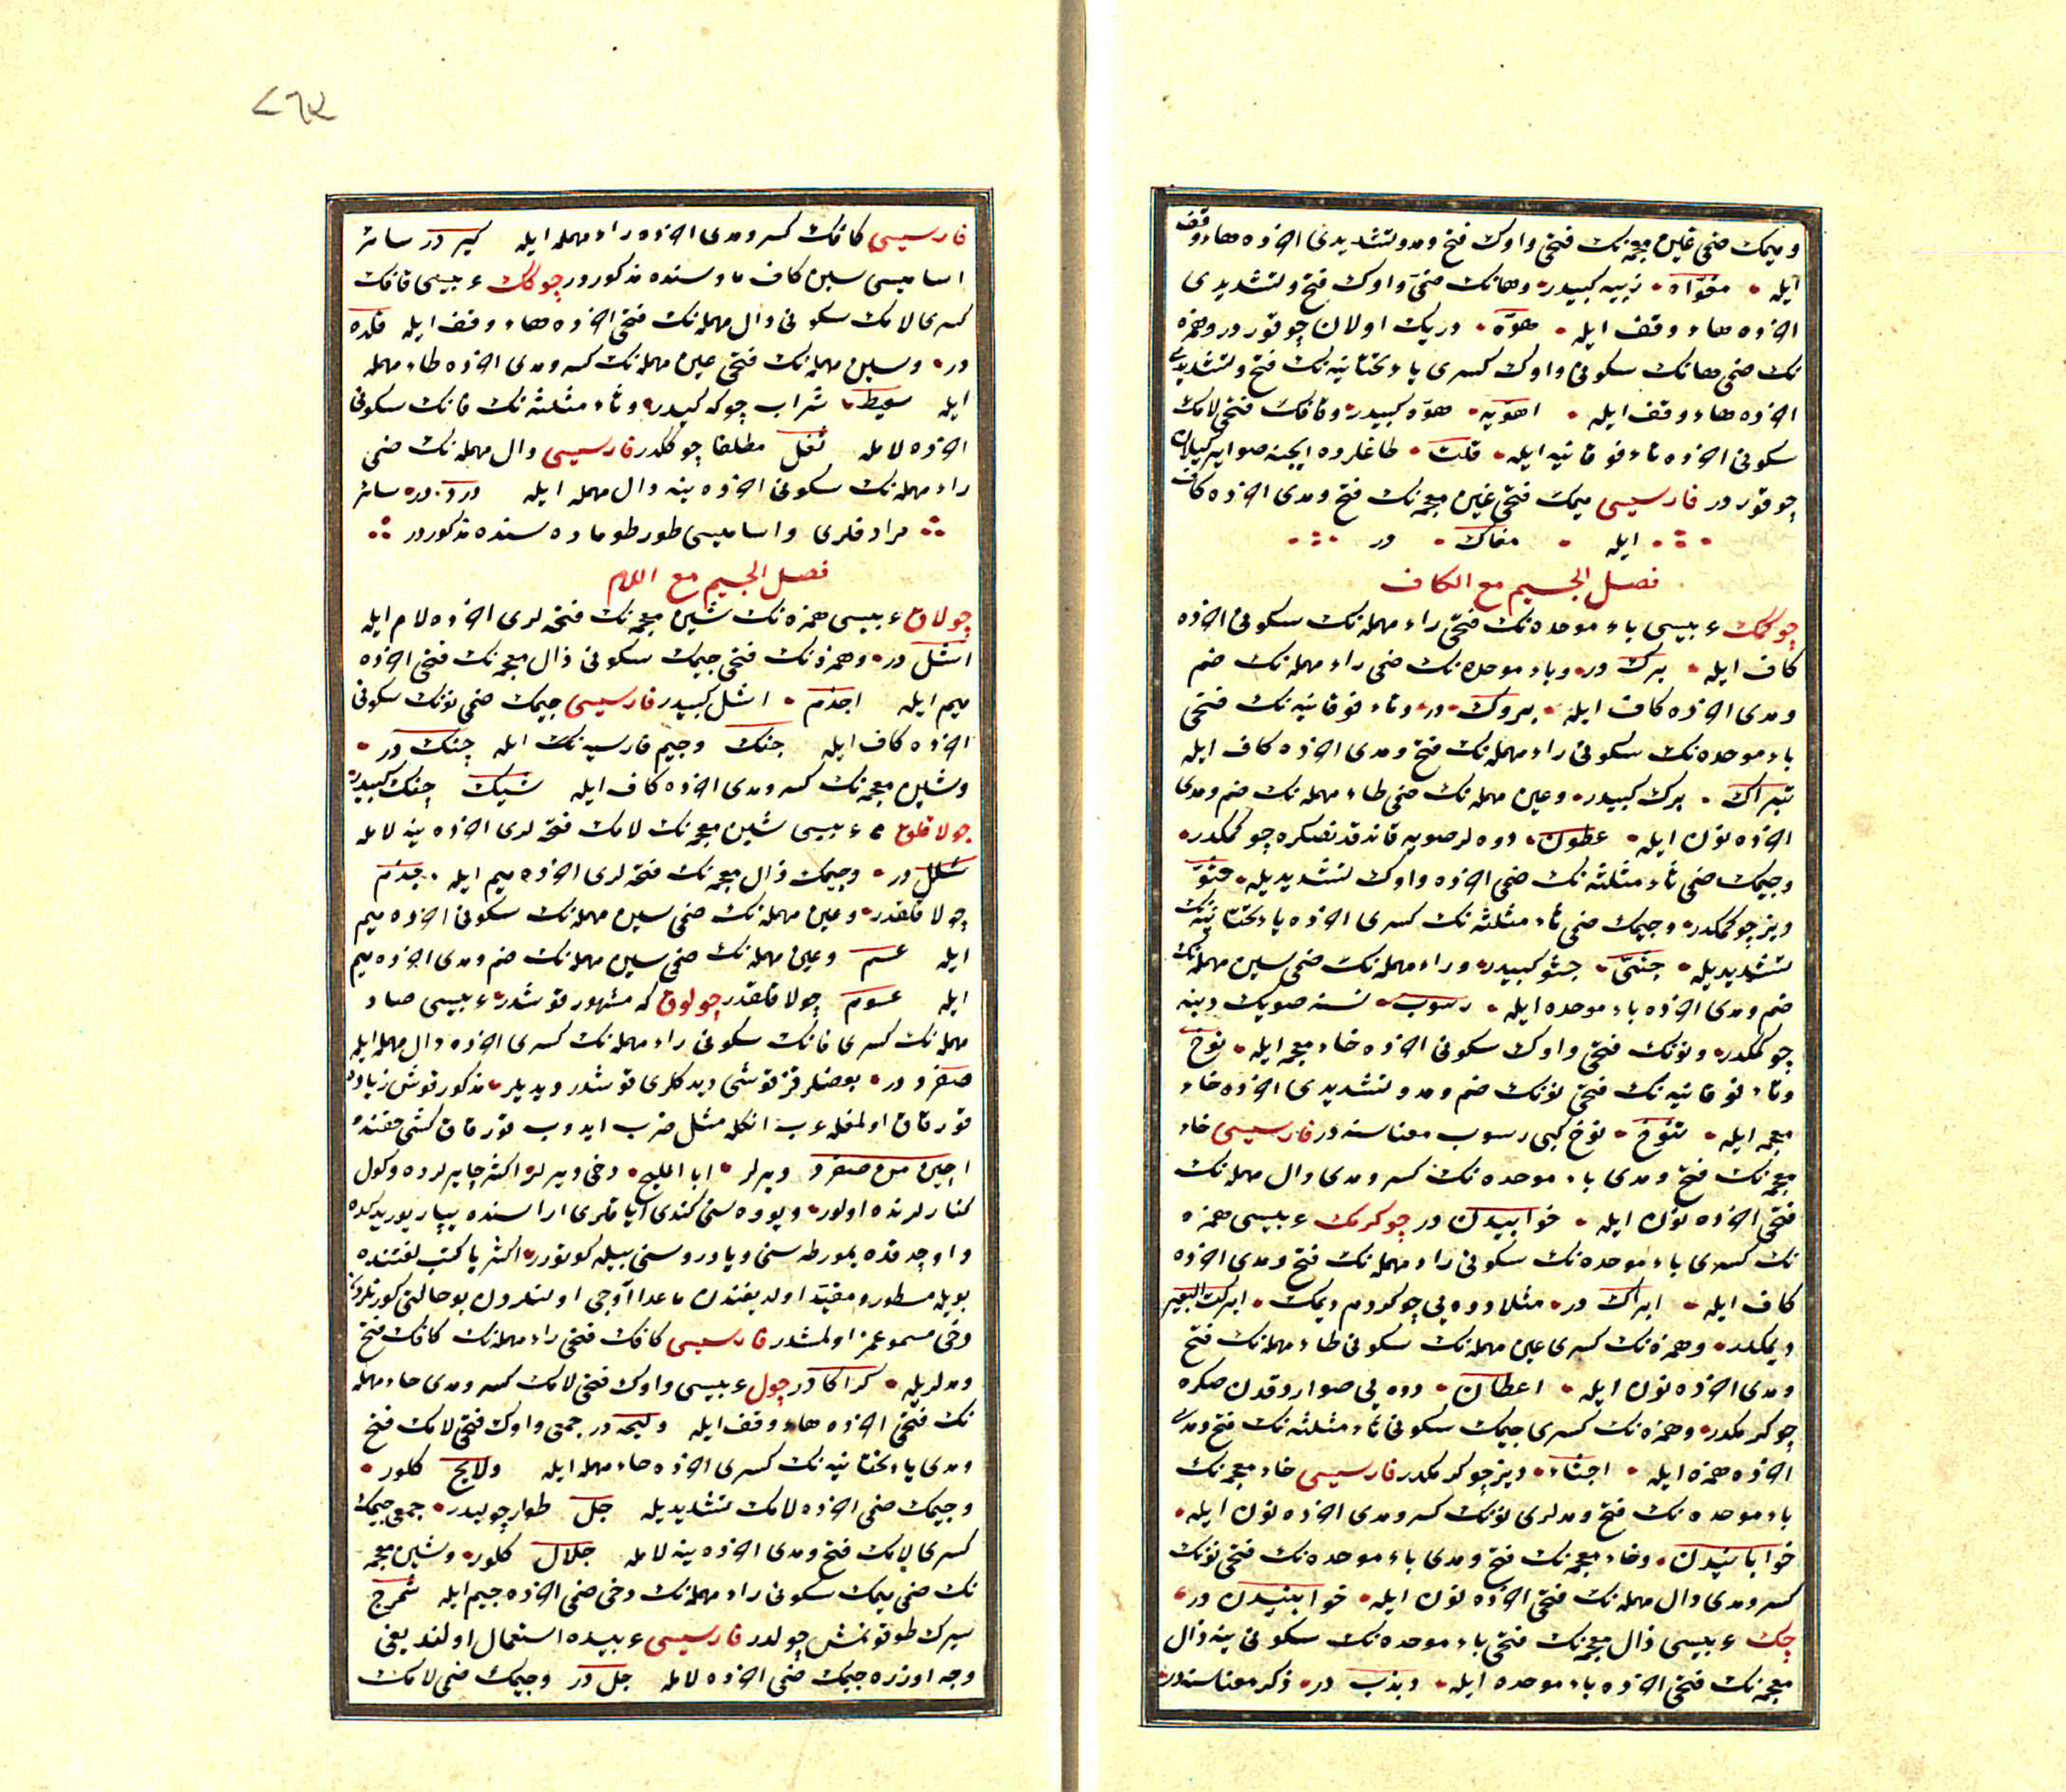 و میمك ضمی غین معجمه‌نك فتحی واوك فتح و مد و تشدیدی آخرده هاء وقف
ایله مغوّاه زبیه كبیدر و هانك ضمی واوك فتح و تشدیدی
آخرده هاء وقف ایله هوّه دریك اولان چوقور در و همزه
نك ضمی هانك سكونی واوك كسری یاء تحتانیه نك فتح و تشدیدی
آخرده هاء وقف ایله اهویه هوّه كبیدر و قافك فتحی لامك
سكونی آخرده تاء فوقانیه ایله قلت طاغلرده ایچنه صو
چوقور در فارسیسی میمك فتحی غین معجمه نك فتح و مدی آخرده كاف
ایله مغاك در
فصل الجیم مع الكاف
چوكمك عربیسی باء موحده نك فتحی راء مهمله نك سكونی آخرده
كاف ایله برك در و باء موحده نك ضمی راء مهمله نك ضم
و مدی آخرده كاف ایله بروك در و تاء فوقانیه نك فتحی
باء موحده نك سكونی راء مهمله نك فتح و مدی آخرده كاف ایله
تبراك برك كبیدر و عین مهمله نك ضمی طاء مهمله نك ضم و مدی
آخرده نون ایله عطون دوه لر صویه قاندقدنصكره چوكمكدر
و جیمك ضمی ثاء مثلثه نك ضمی آخرده واوك تشدیدیله جثوّ
دیز چوكمكدر و جیمك ضمی ثاء مثلثه نك كسری آخرده یاء تحتانیه نك
تشدیدیله جثیّ جثو كبیدر و راء مهمله نك ضمی سین مهمله نك
ضم و مدی آخرده باء موحده ایله رسوب نسنه صویك دبنه
چوكمكدر و نونك فتحی واوك سكونی آخرده خاء معجمه ایله نوخ
و تاء فوقانیه نك فتحی نونك ضم و مد و تشدیدی آخرده خاء
معجمه ایله تنوخ نوخ كبی رسوب معناسنه در فارسیسی خاء
معجمه نك فتح و مدی باء موحده نك كسر و مدی دال مهمله نك
فتحی آخرده نون ایله خوابیدن در چوكرمك عربیسی همزه
نك كسری باء موحده نك سكونی راء مهمله نك فتح و مدی آخرده
كاف ایله ابراك در مثلا دوه یی چوكردم دیمك ابركت البعیر
دیمكدر و همزه نك كسری عین مهمله نك سكونی طاء مهمله نك فتح
و مدی آخرده نون ایله اعطان دوه یی صواردقدن صكره
چوكرمكدر و همزه نك كسری جیمك سكونی ثاء مثلثه نك فتح و مدی
آخرده همزه ایله اجثاء دیز چوكرمكدر فارسیسی خاء معجمه نك
باء موحده نك فتح و مدلری نونك كسر و مدی آخرده نون ایله
خوابانیدن و خاء معجمه نك فتح و مدی باء موحده نك فتحی نونك
كسر و مدی دال مهمله نك فتحی آخرده نون ایله خوابنیدن در
چك عربیسی ذال معجمه نك فتحی باء موحده نك سكونی ینه ذال
معجمه نك فتحی آخرده باء موحده ایله ذبذب در ذكر معناسنه در
٢٦٢
فارسیسی كافك كسر و مدی آخرده راء مهمله ایله كیر در سائر
اسامیسی سین كاف ماده سنده مذكور در چوكك عربیسی قافك
كسری لامك سكونی دال مهمله نك فتحی آخرده هاء وقف ایله قلده
در و سین مهمله نك فتحی عین مهمله نك كسر و مدی آخرده طاء مهمله
ایله سعیط شراب چوكه كیدر و ثاء مثلثه نك فانك سكونی
آخرده لامله ثفل مطلقا چوككدر فارسیسی دال مهمله نك ضمی
راء مهمله نك سكونی آخرده ینه دال مهمله ایله درد در سائر
مرادفلری و اسامیسی طور طو ماده سنده مذكور در
فصل الجیم مع اللام
چولاق عربیسی همزه نك شین معجمه نك فتحه لری آخرده لام ایله
اشل در و همزه نك فتحی جیمك سكونی ذال معجمه نك فتحی آخرده
میم ایله اجذم اشل كبیدر فارسیسی جیمك ضمی نونك سكونی
آخرده كاف ایله جنك و جیم فارسیه نك ایله چنك در
و شین معجمه نك كسر و مدی آخرده كاف ایله شیك چنك كبیدر
چولاقلق عربیسی شین معجمه نك لامك فتحه لری آخرده ینه لامله
شلل در و جیمك ذال معجمه نك فتحه لری آخرده میم ایله جذم
چولاقلقدر و عین مهمله نك ضمی سین مهمله نك سكونی آخرده میم
ایله عسم و عین مهمله نك ضمی سین مهمله نك ضم و مدی آخرده میم
ایله عسوم چولاقلقدر چولوق كه مشهور قوشدر عربیسی صاد
مهمله نك كسری فانك سكونی راء مهمله نك كسری آخرده دال مهمله ایله
صفرد در بعضلر قز قوشی دیدكلری قوشدر دیدیلر مذكور قوش زیاده
قورقاق اولمغله عرب انكله مثل ضرب ایدوب قورقاق كشی حقنده
اجبن من صفرد دیرلر ابا الملیح دخی دیرلر اكثر چایرلرده و كول
كنارلرنده اولور و یووه سنی كندی ایاقلری اراسنده یپار یوریدكده
و اوچدقده یمورطه سنی و یاوروسنی بیله كوتورر اكثر یا كتب لغتنده
بویله مسطور و مقید اولدیغندن ماعدا آوجی اوستلردن بو حالنی كورنلردن
دخی مسموعمز اولمشدر فارسیسی كافك فتحی راء مهمله نك كافك فتح
و مدلریله كراكا در چول عربیسی واوك فتحی لامك كسر و مدی حاء مهمله
نك فتحی آخرده هاء وقف ایله ولیحه در جمعی واوك فتحی لامك فتح
و مدی یاء تحتانیه نك كسری آخرده حاء مهمله ایله ولایح كلور
و جیمك ضمی آخرده لامك تشدیدیله جل طوار چولیدر جمعی جیمك
كسری لامك فتح و مدی آخرده ینه لامله جلال كلور و شین معجمه
نك ضمی میمك سكونی راء مهمله نك دخی ضمی آخرده جیم ایله شمرج
سیرك طوقونمش چولدر فارسیسی عربیده استعمال اولندیغی
وجه اوزره جیمك ضمی آخرده لامله جل در و جیمك ضمی لامك